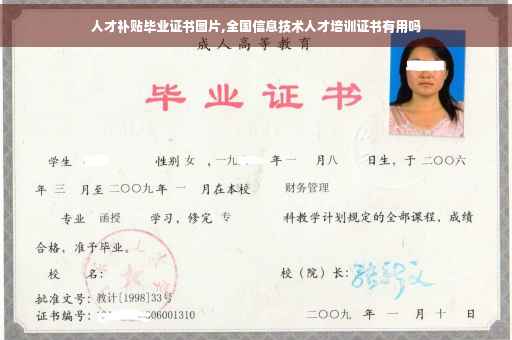 人才补贴毕业证书图片,全国信息技术人才培训证书有用吗
成人高等教育
毕业证书
学生 性别 女 ,一九 年一 月八 日生，于二〇〇六
年 三 月至二〇〇九年 一 月在本校 财务管理
专业 函授 学习，修完 专 科教学计划规定的全部课程，成绩
合格，准予毕业。
校 名： 校（院）长：
批准文号：教计[1998]33号
证书编号： 06001310 二〇〇九 年 一 月 十 日